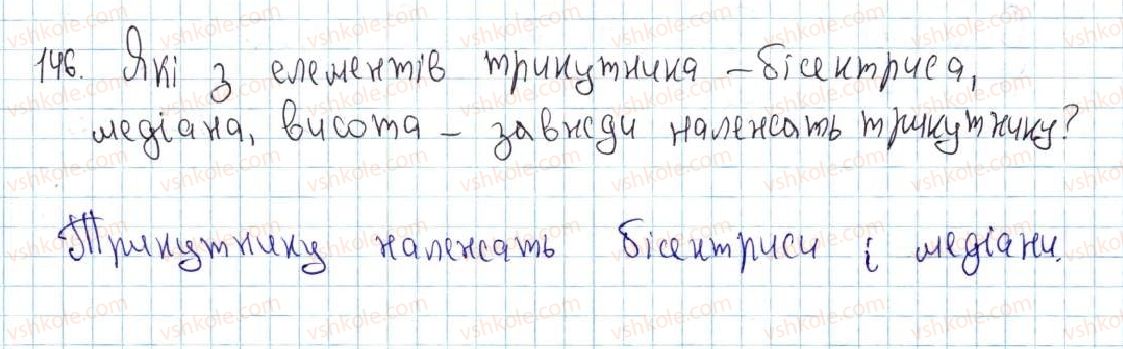 146. Які з елементів трикутника – бісектриса,
медіана, висота – завжди належать трикутнику?
Трикутнику належать бісектриси і медіани.